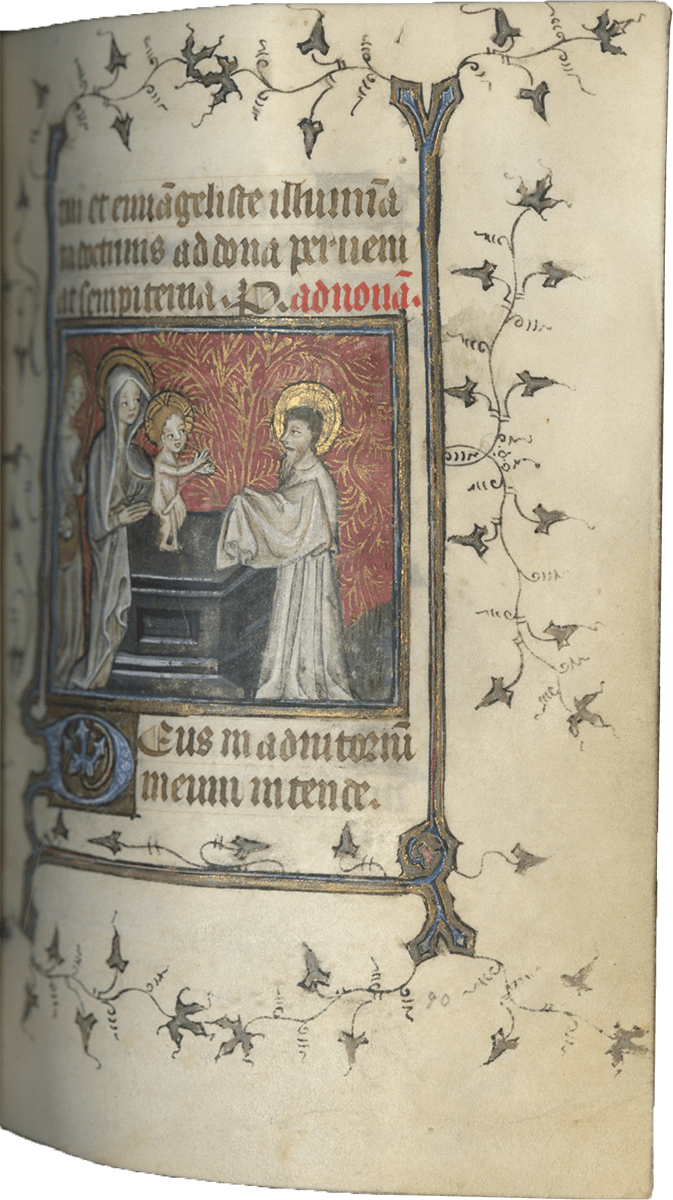 tui et euuāgeliste illumīa
ta doctrinis ad dona perueni
at sempiterna. P. ad nonā.
Deus in adiutoriū
meum intende.
90